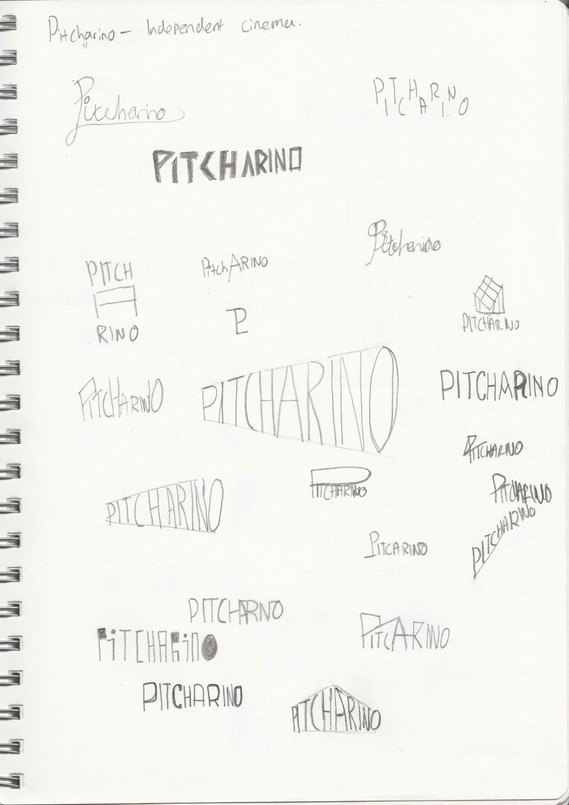 Pitcharino - Independent cinema.
Pitcharino
PITCHARINO
PITCHARINO
Pitcharino
PITCH
A
RINO
PitchARINO
P
PITCHARINO
PITCHARINO
PITCHARINO
PITCHARINO
PITCHARINO
PITCHARINO
PITCHARINO
PITCHARINO
PITCHARINO
PITCHARINO
PITCARINO
PITCHARNO
PiTCHARinO
PITCARINO
PITCHARINO
PITCHARINO